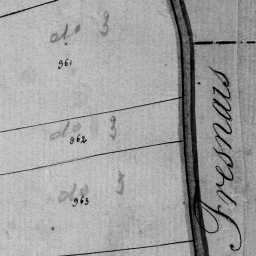 do 3
961
do 3
962
do 3
963
Fresnais